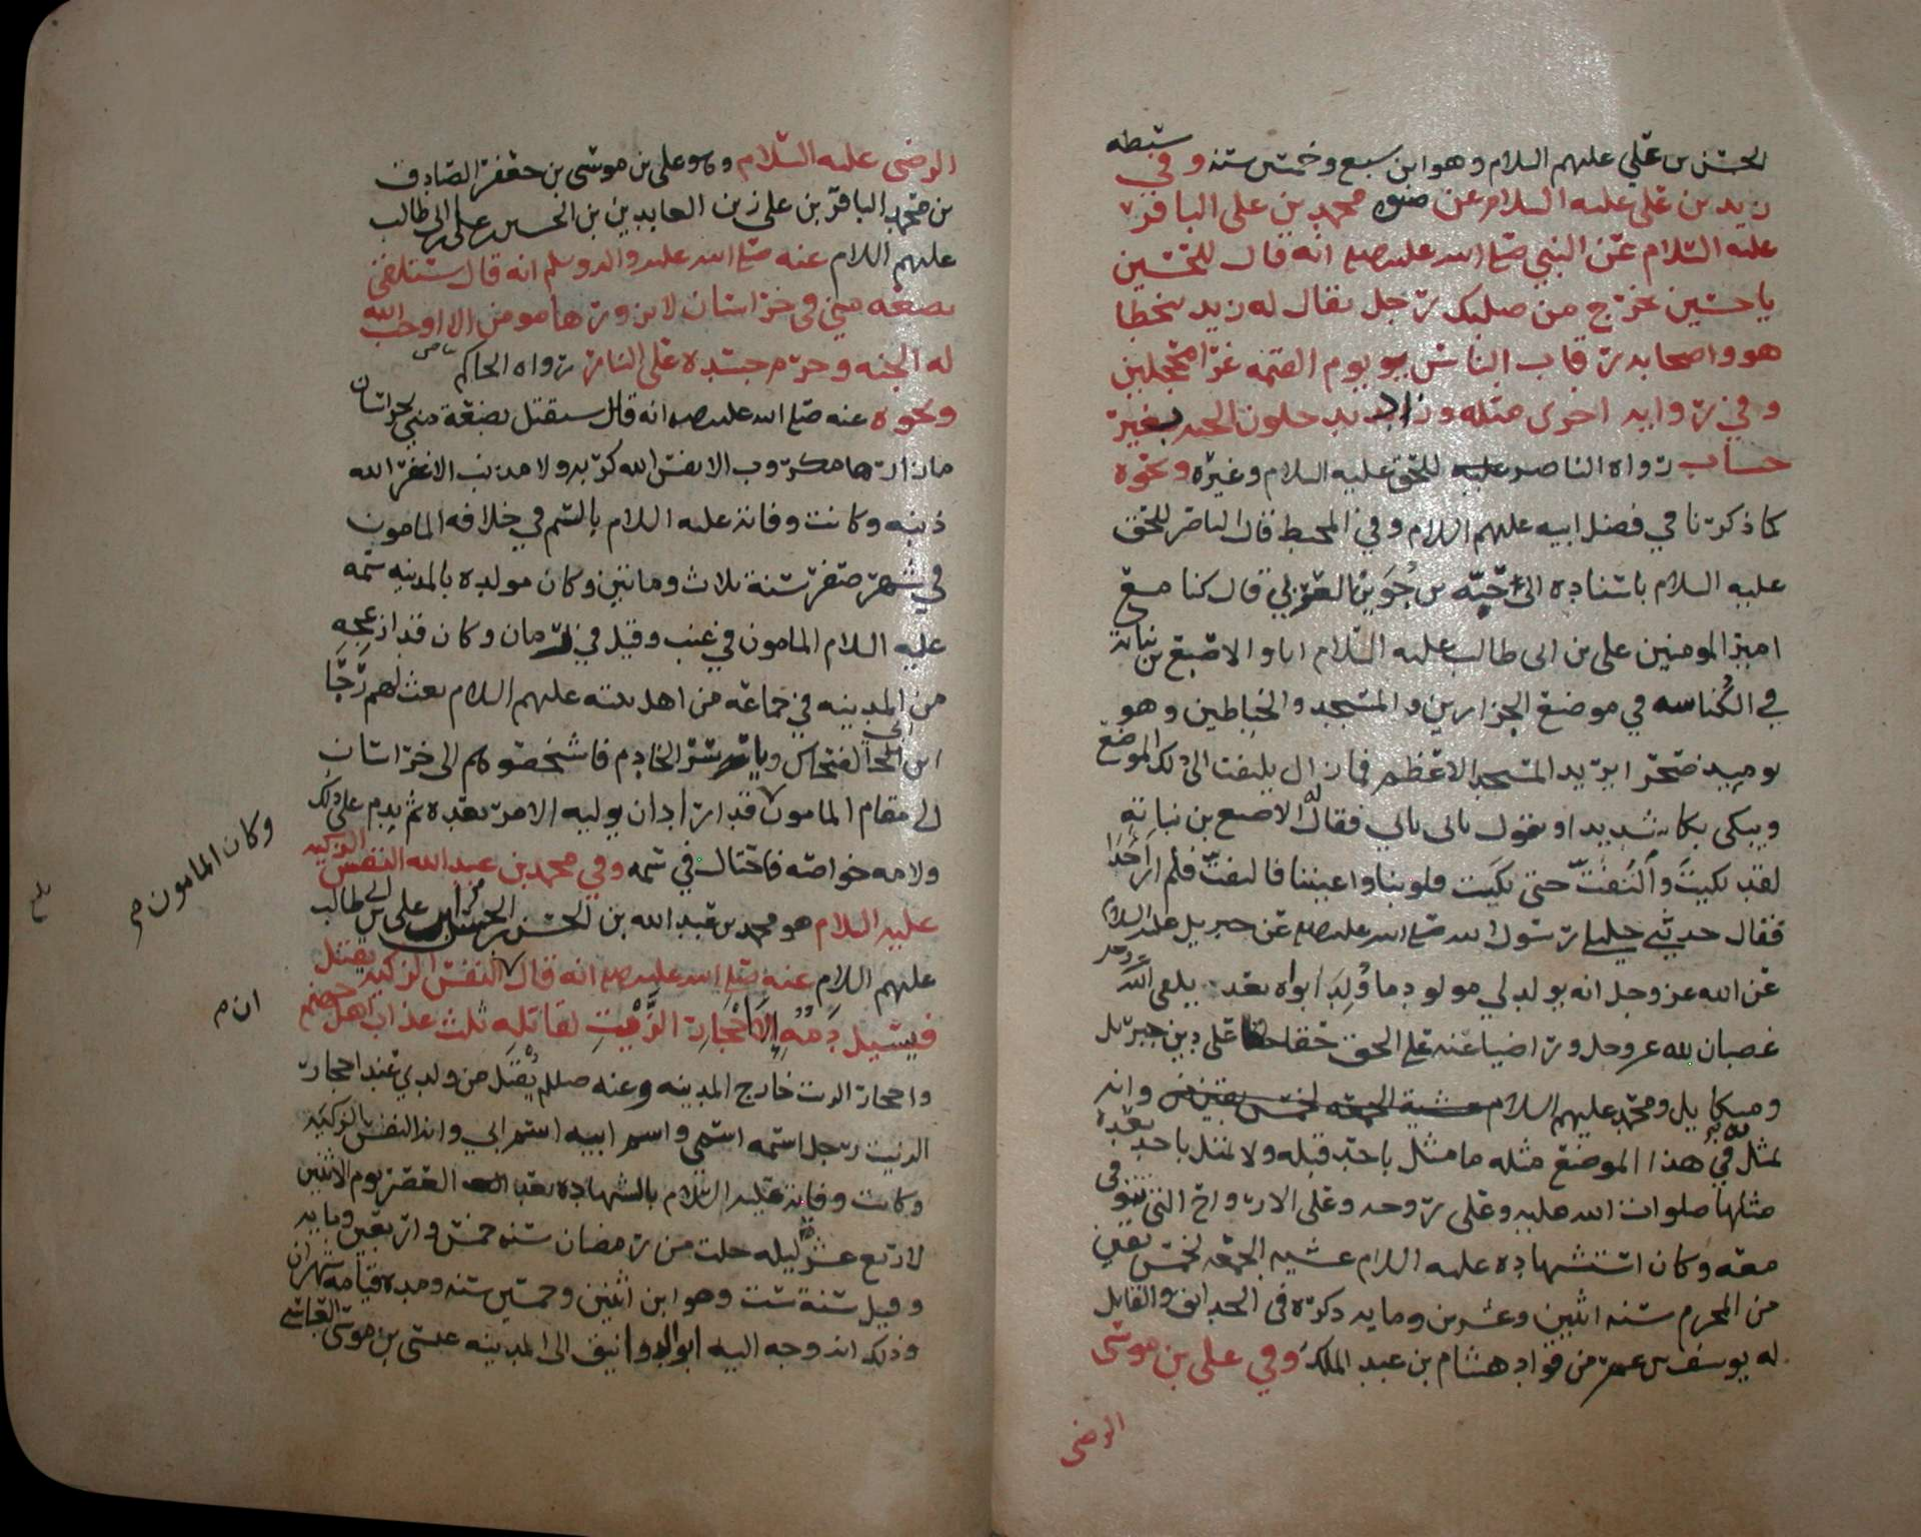 الحسن بن علي عليهم السلام وهو ابن سبع وخمسين سنه وفي سبطه
زيد بن علي عليه السلام عن صنوه محمد بن علي الباقر
عليه السلام عن النبي صلى الله عليه انه قال للحسين
يا حسين يخرج من صلبك رجل يقال له زيد يتخطا
هو واصحابه رقاب الناس يوم القيمه غرا محجلين
وفي روايه اخرى مثله وزاد يدخلون الجنه بغير
حساب رواه الناصر للحق عليه السلام وغيره ونحوه
كما ذكرنا في فضل ابيه عليهم السلام وفي المحيط قال الناصر للحق
عليه السلام باسناده الى حبة بن جوين العرني قال كنا مع
امير المومنين علي بن ابي طالب عليه السلام انا والاصبغ بن نباته
في الكناسه في موضع الجزارين والمسجد والخياطين وهو
يوميذ صحرا يريد المسجد الاعظم فما زال يلتفت الى ذلك الموضع
ويبكي بكا شديدا ويقول بابي بابي فقال له الاصبغ بن نباته
لقد بكيت والتفت حتى بكيت قلوبنا واعيننا فالتفت فلم ار احدا
فقال حدثني خليلي رسول الله صلى الله عليه عن جبريل عليه السلام
عن الله عز وجل انه يولد لي مولود ما ولد ابواه بعد يلقى الله
غضبان لله عز وجل وراضيا عنه على الحق حقا حقا على دين جبريل
وميكاييل ومحمد عليهم السلام وانه
يمثل به في هذا الموضع مثله ما مثل باحد قبله ولا يمثل باحد بعده
مثلها صلوات الله عليه وعلى روحه وعلى الارواح التي تتوفى
معه وكان استشهاده عليه السلام عشية الجمعه لخمس بقين
من المحرم سنه اثنين وعشرين ومايه ذكره في الحدائق والقاتل
له يوسف بن عمر من قواد هشام بن عبد الملك وفي علي بن موسى
الرضى
الرضى عليه السلام وهو علي بن موسى بن جعفر الصادق
بن محمد الباقر بن علي زين العابدين بن الحسين بن علي بن ابي طالب
عليهم السلام عنه صلى الله عليه واله وسلم انه قال ستدفن
بضعه مني في خراسان لا يزورها مومن الا اوجب الله
له الجنه وحرم جسده على النار رواه الحاكم
ونحوه عنه صلى الله عليه انه قال ستقتل بضعة مني بخراسان
ما زارها مكروب الا نفس الله كربه ولا مذنب الا غفر الله
ذنبه وكانت وفاته عليه السلام بالسم في خلافه المامون
في شهر صفر سنة ثلاث وماتين وكان مولده بالمدينه سمه
عليه السلام المامون في عنب وقيل في رمان وكان قد ازعجه
من المدينه في جماعة من اهل بيته عليهم السلام بعث لهم رجا
ابن ابي الضحاك وياسر الخادم فاشخصوهم الى خراسان
الى مقام المامون قد اراد ان يوليه الامر بعده ثم ندم على ذلك
وكان المامون
ولامه خواصه فاحتال في سمه وفي محمد بن عبد الله النفس الزكيه
عليه السلام هو محمد بن عبد الله بن الحسن بن الحسن بن علي بن ابي طالب
عليهم السلام عنه صلى الله عليه انه قال النفس الزكيه يقتل
ان
فيسيل دمه الى احجار الزيت لقاتله ثلث عذاب اهل جهنم
واحجار الزيت خارج المدينه وعنه صللم يقتل من ولدي عند احجار
الزيت رجل اسمه اسمي واسم ابيه اسم ابي وانه النفس الزكيه
وكانت وفاته عليه السلام بالشهاده بعد العصر يوم الاثنين
لاربع عشر ليله خلت من رمضان سنه خمس واربعين ومايه
وقيل سنة ست وهو ابن اثنين وخمسين سنه ومده قيامه شهران
وذلك انه وجه اليه ابو الدوانيق الى المدينه عيسى بن موسى العباسي